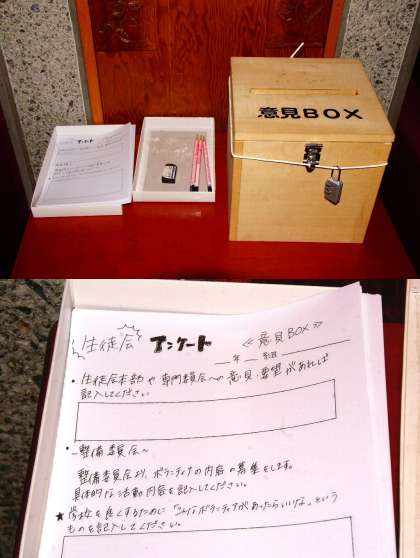 アンケート
意見BOX
生徒会 アンケート ≪意見BOX≫
年 組
・生徒会本部や専門委員会への意見・要望があれば
記入してください
~整備委員会~
整備委員会より、ボランティアの内容の募集をします。
具体的な活動内容を記入してください。
★学校を良くするために「こんなボランティアがあったらいいな」という
ものを記入してください。